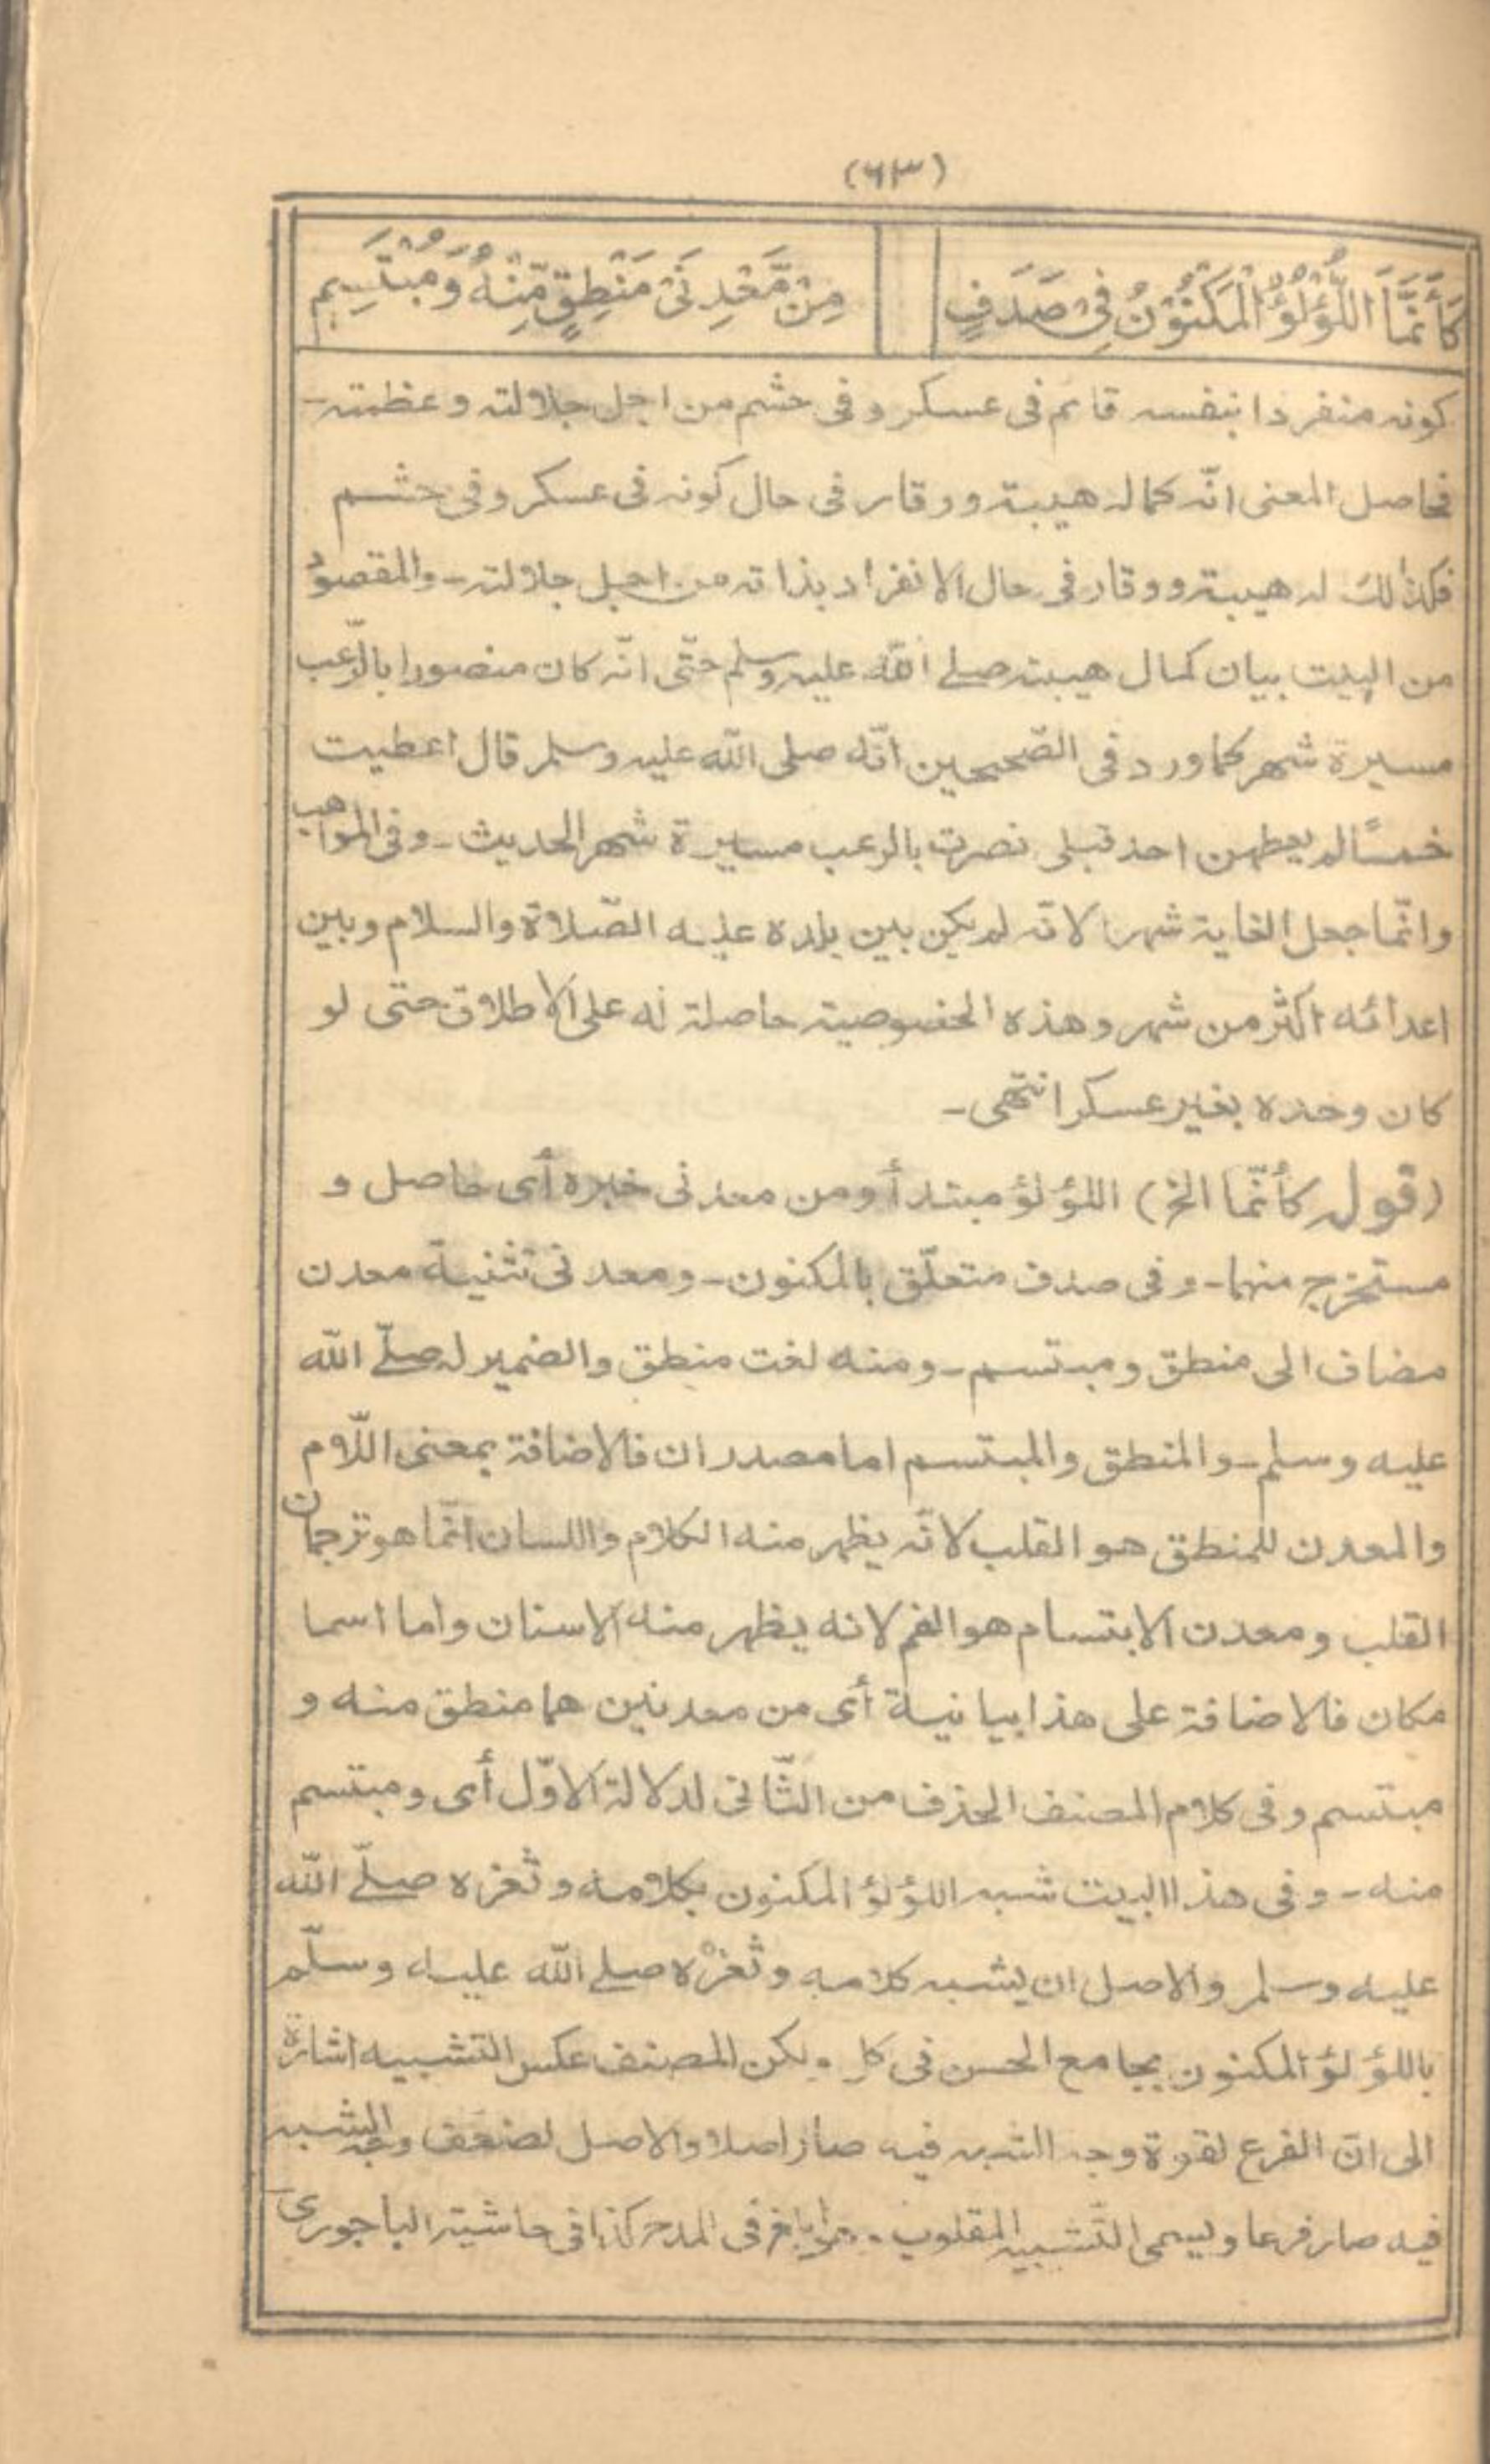 (٦٣)
كَأَنَّمَا اللُّؤْلُؤُ الْمَكْنُوْنُ فِىْ صَدَفٍ
مِنْ مَّعْدِنَىْ مَنْطِقٍ مِّنْهُ وَمُبْتَسِمٖ
كونه منفردا بنفسه قائم فى عسكر وفى حشم من اجل جلالته وعظمته-
فحاصل المعنى انّه كما له هيبة ووقار فى حال كونه فى عسكر وفى حشم
فكذالك له هيبة ووقار فى حال الانفراد بذاته من اجل جلالته- والمقصود
من البيت بيان كمال هيبته صلى الله عليه وسلم حتّى انّه كان منصورا بالرّعب
مسيرة شهر كما ورد فى الصّحيحين انّه صلى الله عليه وسلم قال اعطيت
خمسًا لم يعطهن احد قبلى نصرت بالرعب مسيرة شهر الحديث- وفى المواهب
وانّما جعل الغاية شهرا لانّه لم يكن بين بلده عليه الصّلاة والسلام وبين
اعدائه اكثر من شهر وهذه الخصوصية حاصلة له على الاطلاق حتى لو
كان وحده بغير عسكر انتهى-
(قوله كأنّما الخ) اللؤلؤ مبتدأ ومن معدنى خبره أى حاصل و
مستخرج منهما- وفى صدف متعلّق بالمكنون- ومعدنى تثنية معدن
مضاف الى منطق ومبتسم- ومنه نعت منطق والضمير له صلّى الله
عليه وسلم- والمنطق والمبتسم اما مصدران فالاضافة بمعنى اللّام
والمعدن للمنطق هو القلب لانّه يظهر منه الكلام واللسان انّما هو ترجمان
القلب ومعدن الابتسام هو الفم لانه يظهر منه الاسنان واما اسما
مكان فالاضافة على هذا بيانية أى من معدنين هما منطق منه و
مبتسم وفى كلام المصنف الحذف من الثّانى لدلالة الاوّل أى ومبتسم
منه- وفى هذا البيت شبه اللؤلؤ المكنون بكلامه وثغره صلّى الله
عليه وسلم والاصل ان يشبه كلامه وثغره صلى الله عليه وسلّم
باللؤلؤ المكنون بجامع الحسن فى كل ولكن المصنف عكس التشبيه اشارة
الى انّ الفرع لقوة وجه الشبه فيه صار اصلا والاصل لضعف وجه الشبه
فيه صار فرعا ويسمى التّشبيه المقلوب فى المدح كذا فى حاشية الباجورى